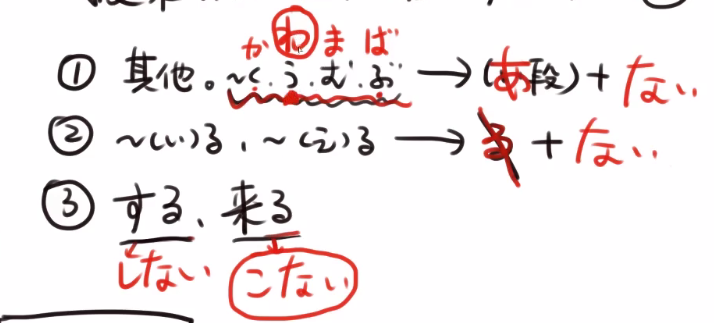 かわまば
① 其他。～く.う.む.ぶ → (あ段)+ない
② ～(い)る、～(え)る → る + ない
③ する、来る
しない こない